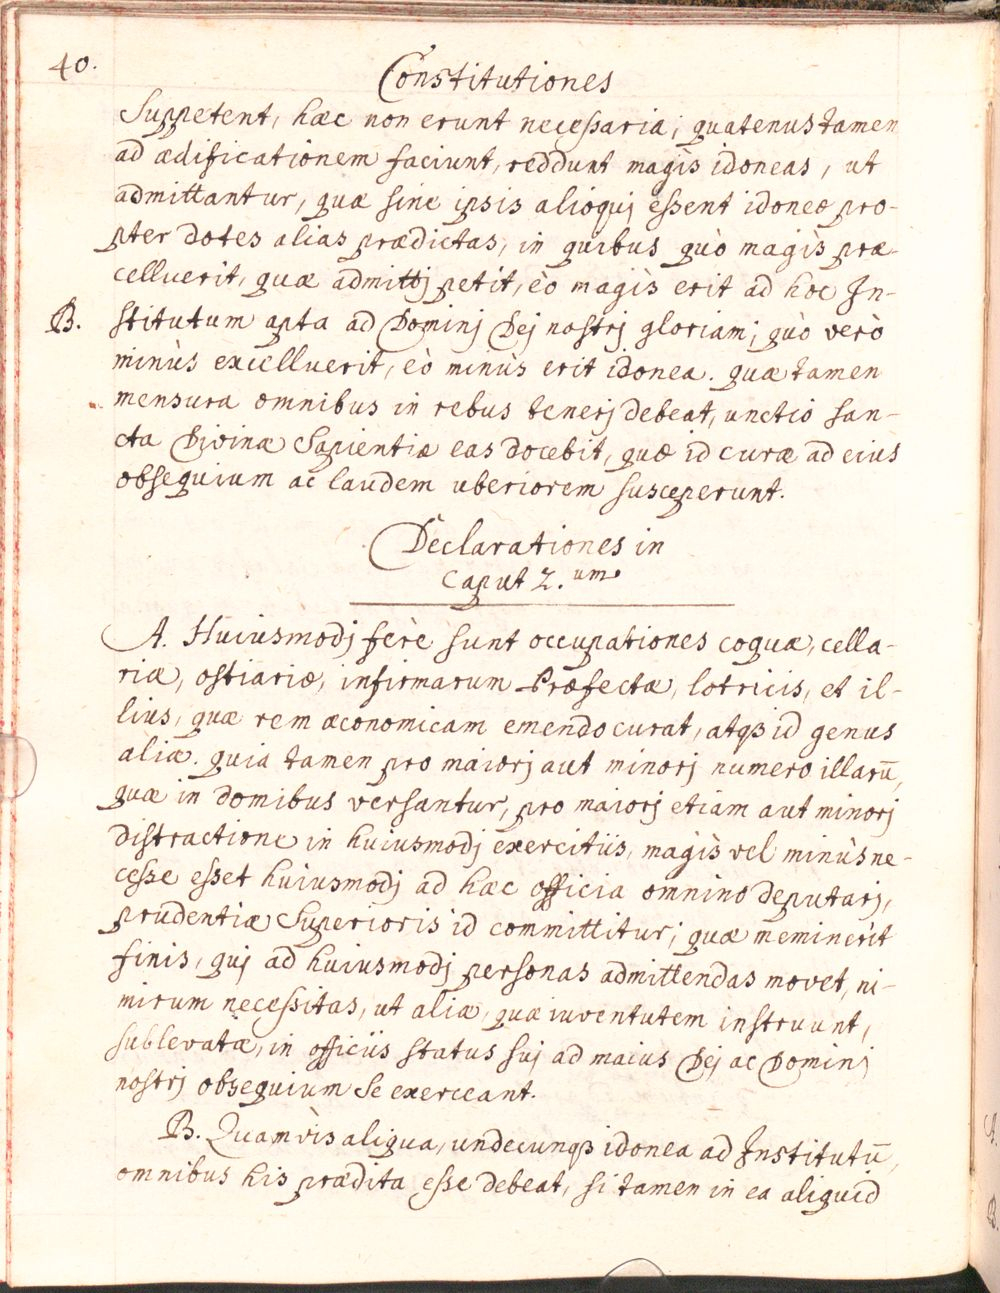 40.
Constitutiones
Suppetent, hæc non erunt necessaria; quatenus tamen
ad ædificationem faciunt, reddunt magìs idoneas, ut
admittantur, quæ sine ipsis alioquj essent idoneæ pro-
pter dotes alias prædictas, in quibus quò magìs præ-
celluerit, quæ admittj petit, eò magìs erit ad hoc In-
B. stitutum apta ad Dominj Dej nostrj gloriam; quò verò
minùs excelluerit, eò minùs erit idonea. quæ tamen
mensura omnibus in rebus tenerj debeat, unctio san-
cta Divinæ Sapientiæ eas docebit, quæ id curæ ad eius
obsequium ac laudem uberiorem susceperunt.
Declarationes in
Caput 2.um
A. Huiusmodj ferè sunt occupationes coquæ, cella-
riæ, ostiariæ, infirmarum Præfectæ, lotricis, et il-
lius, quæ rem æconomicam emendo curat, atqꝫ id genus
aliæ. quia tamen pro maiorj aut minorj numero illarū,
quæ in domibus versantur, pro maiorj etiam aut minorj
distractione in huiusmodj exercitiis, magìs vel minùs ne-
cesse esset huiusmodj ad hæc officia omnino deputarj,
prudentiæ Superioris id committitur; quæ meminerit
finis, quj ad huiusmodj personas admittendas movet, ni-
mirum necessitas, ut aliæ, quæ iuventutem instruunt,
sublevatæ, in officiis status suj ad maius Dej ac Dominj
nostrj obsequium se exerceant.
B. Quamvìs aliqua, undecunqꝫ idonea ad Institutū,
omnibus his prædita esse debeat, si tamen in ea aliquid